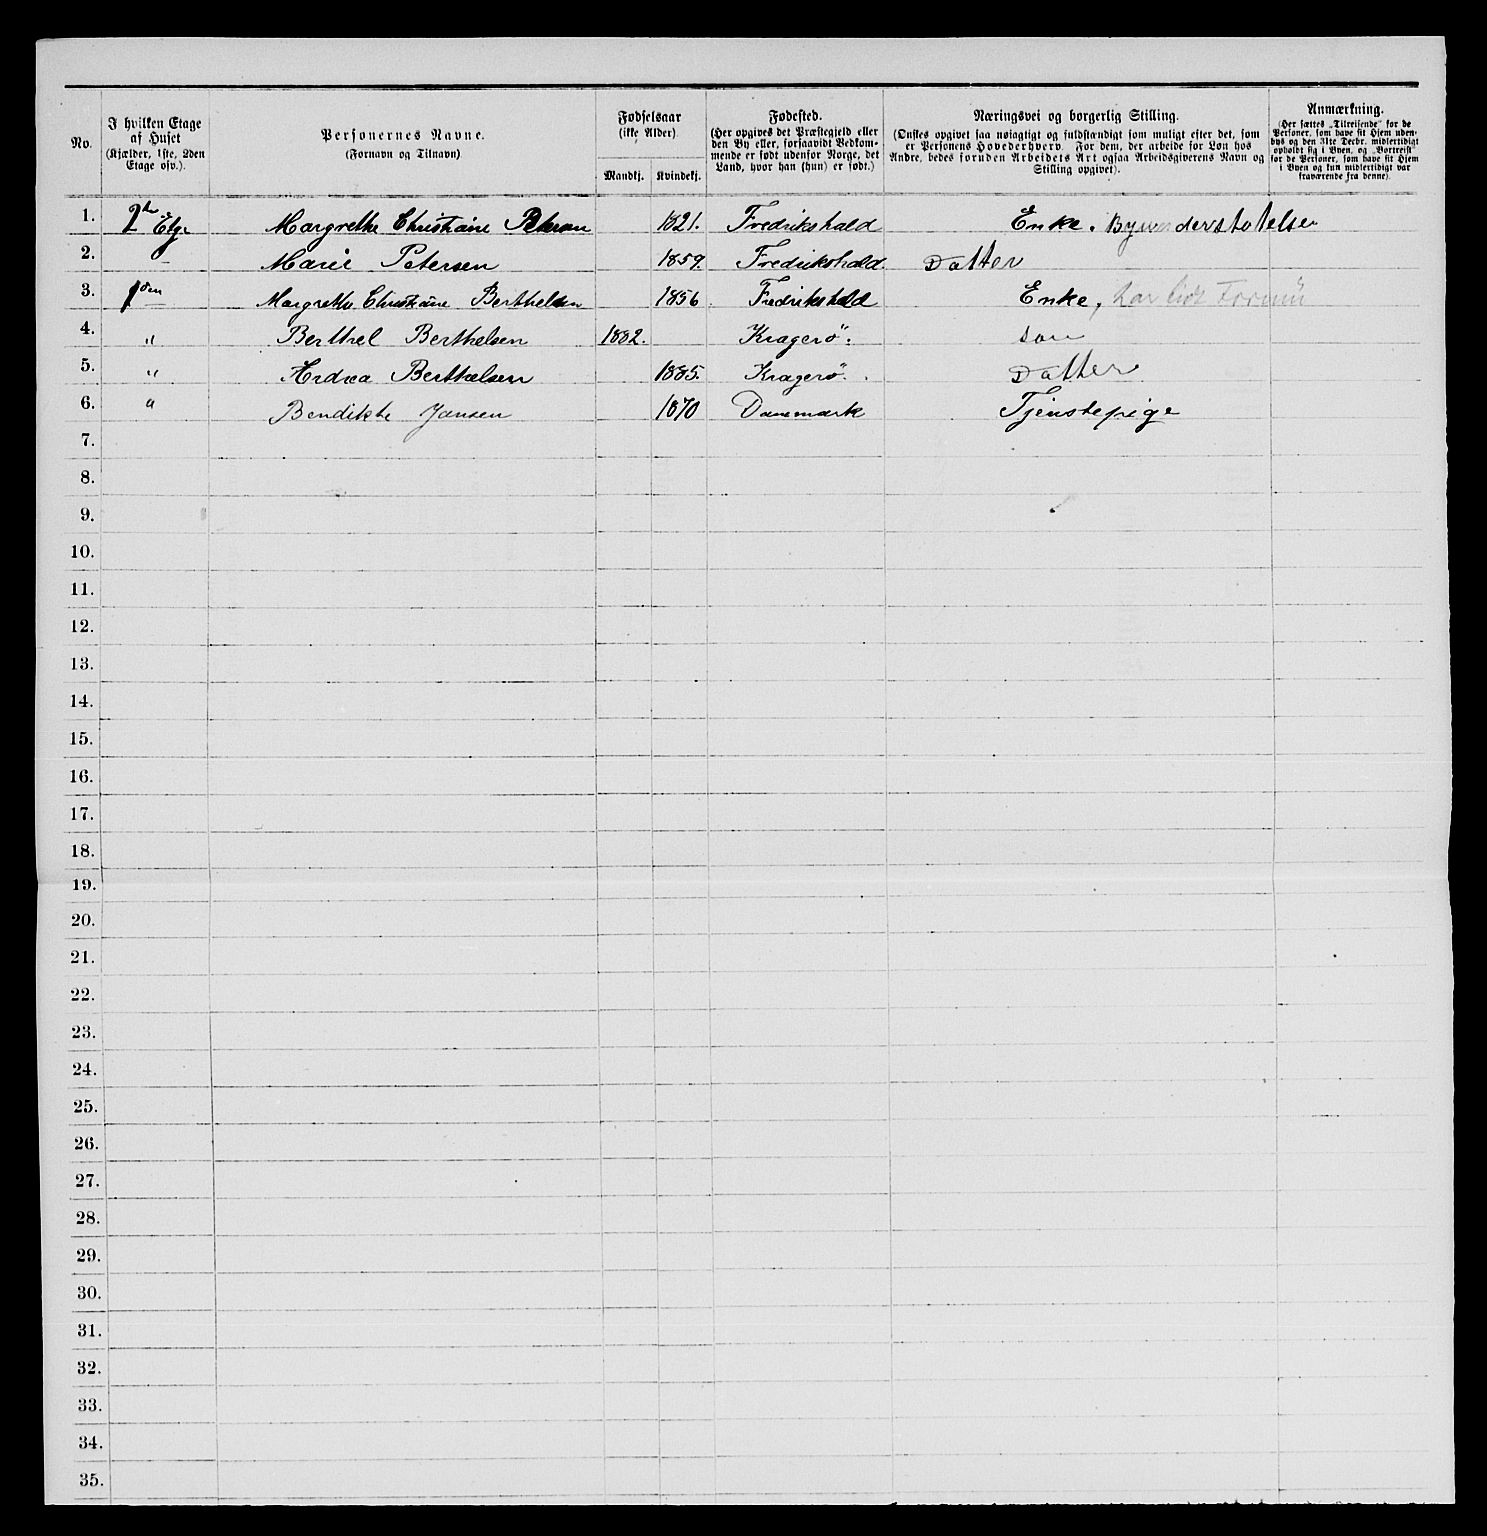 No.
I hvilken Etage
af Huset
(Kjælder, 1ste, 2den
Etage osv.).
Personernes Navne.
(Fornavn og Tilnavn)
Fødselsaar
(ikke Alder)
Mandkj.
Kvindekj.
Fødested.
(Her opgives det Præstegjeld eller
den By eller, forsaavidt Vedkom-
mende er født udenfor Norge, det
Land, hvor han (hun) er født.)
Næringsvei og borgerlig Stilling.
(Ønskes opgivet saa nøiagtigt og fuldstændigt som muligt efter det, som
er Personens Hovederhverv. For dem, der arbeide for Løn hos
Andre, bedes foruden Arbeidets Art ogsaa Arbeidsgiverens Navn og
Stilling opgivet).
Anmærkning.
(Her sættes „Tilreisende“ for de
Personer, som have sit Hjem uden-
bys og den 31te Decbr. midlertidigt
opholdt sig i Byen, og „Bortreist“
for de Personer, som have sit Hjem
i Byen og kun midlertidigt var
fraværende fra denne).
1. 2de Etge Margrethe Christiane Petersen 1821. Fredrikshald Enke. Byunderstøtelse
2. — Marie Petersen 1859 Fredrikshald Datter
3. 1den Margrethe Christiane Berthelsen 1856 Fredrikshald Enke, har lidt Formu
4. " Berthel Berthelsen 1882. Kragerö. Søn
5. " Andrea Berthelsen 1885. Kragerö. Datter
6. " Bendikte Jansen 1870 Danmark Tjenstepige
7.
8.
9.
10.
11.
12.
13.
14.
15.
16.
17.
18.
19.
20.
21.
22.
23.
24.
25.
26.
27.
28.
29.
30.
31.
32.
33.
34.
35.